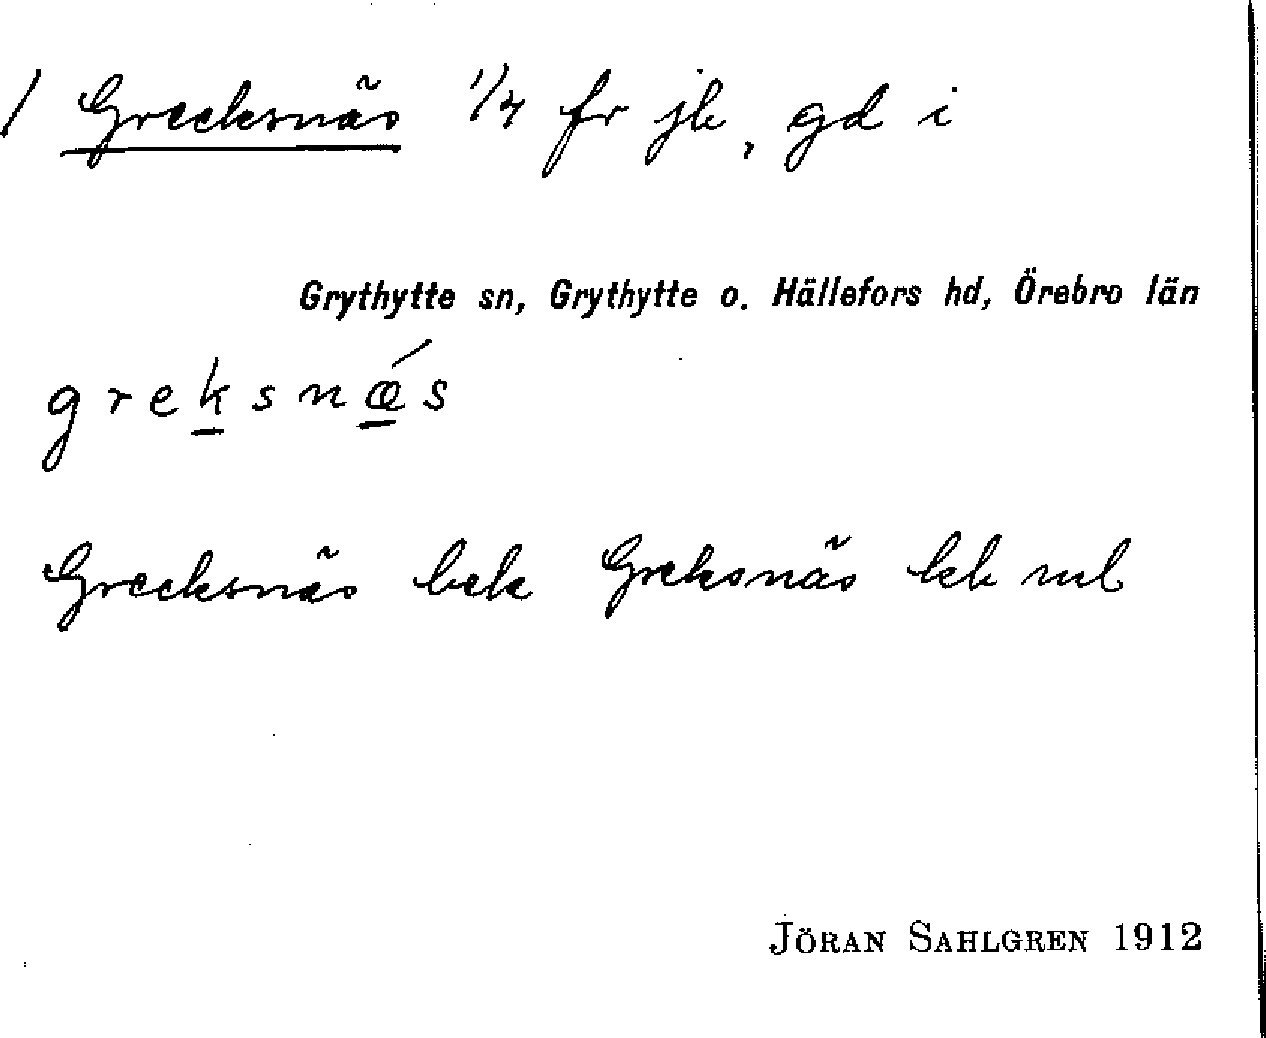 / Grecksnäs 1/4 fr jb, gd i
Grythytte sn, Grythytte o. Hällefors hd, Örebro län
greksnǽs
Grecksnäs bek Greksnäs kk ml
JÖRAN SAHLGREN 1912